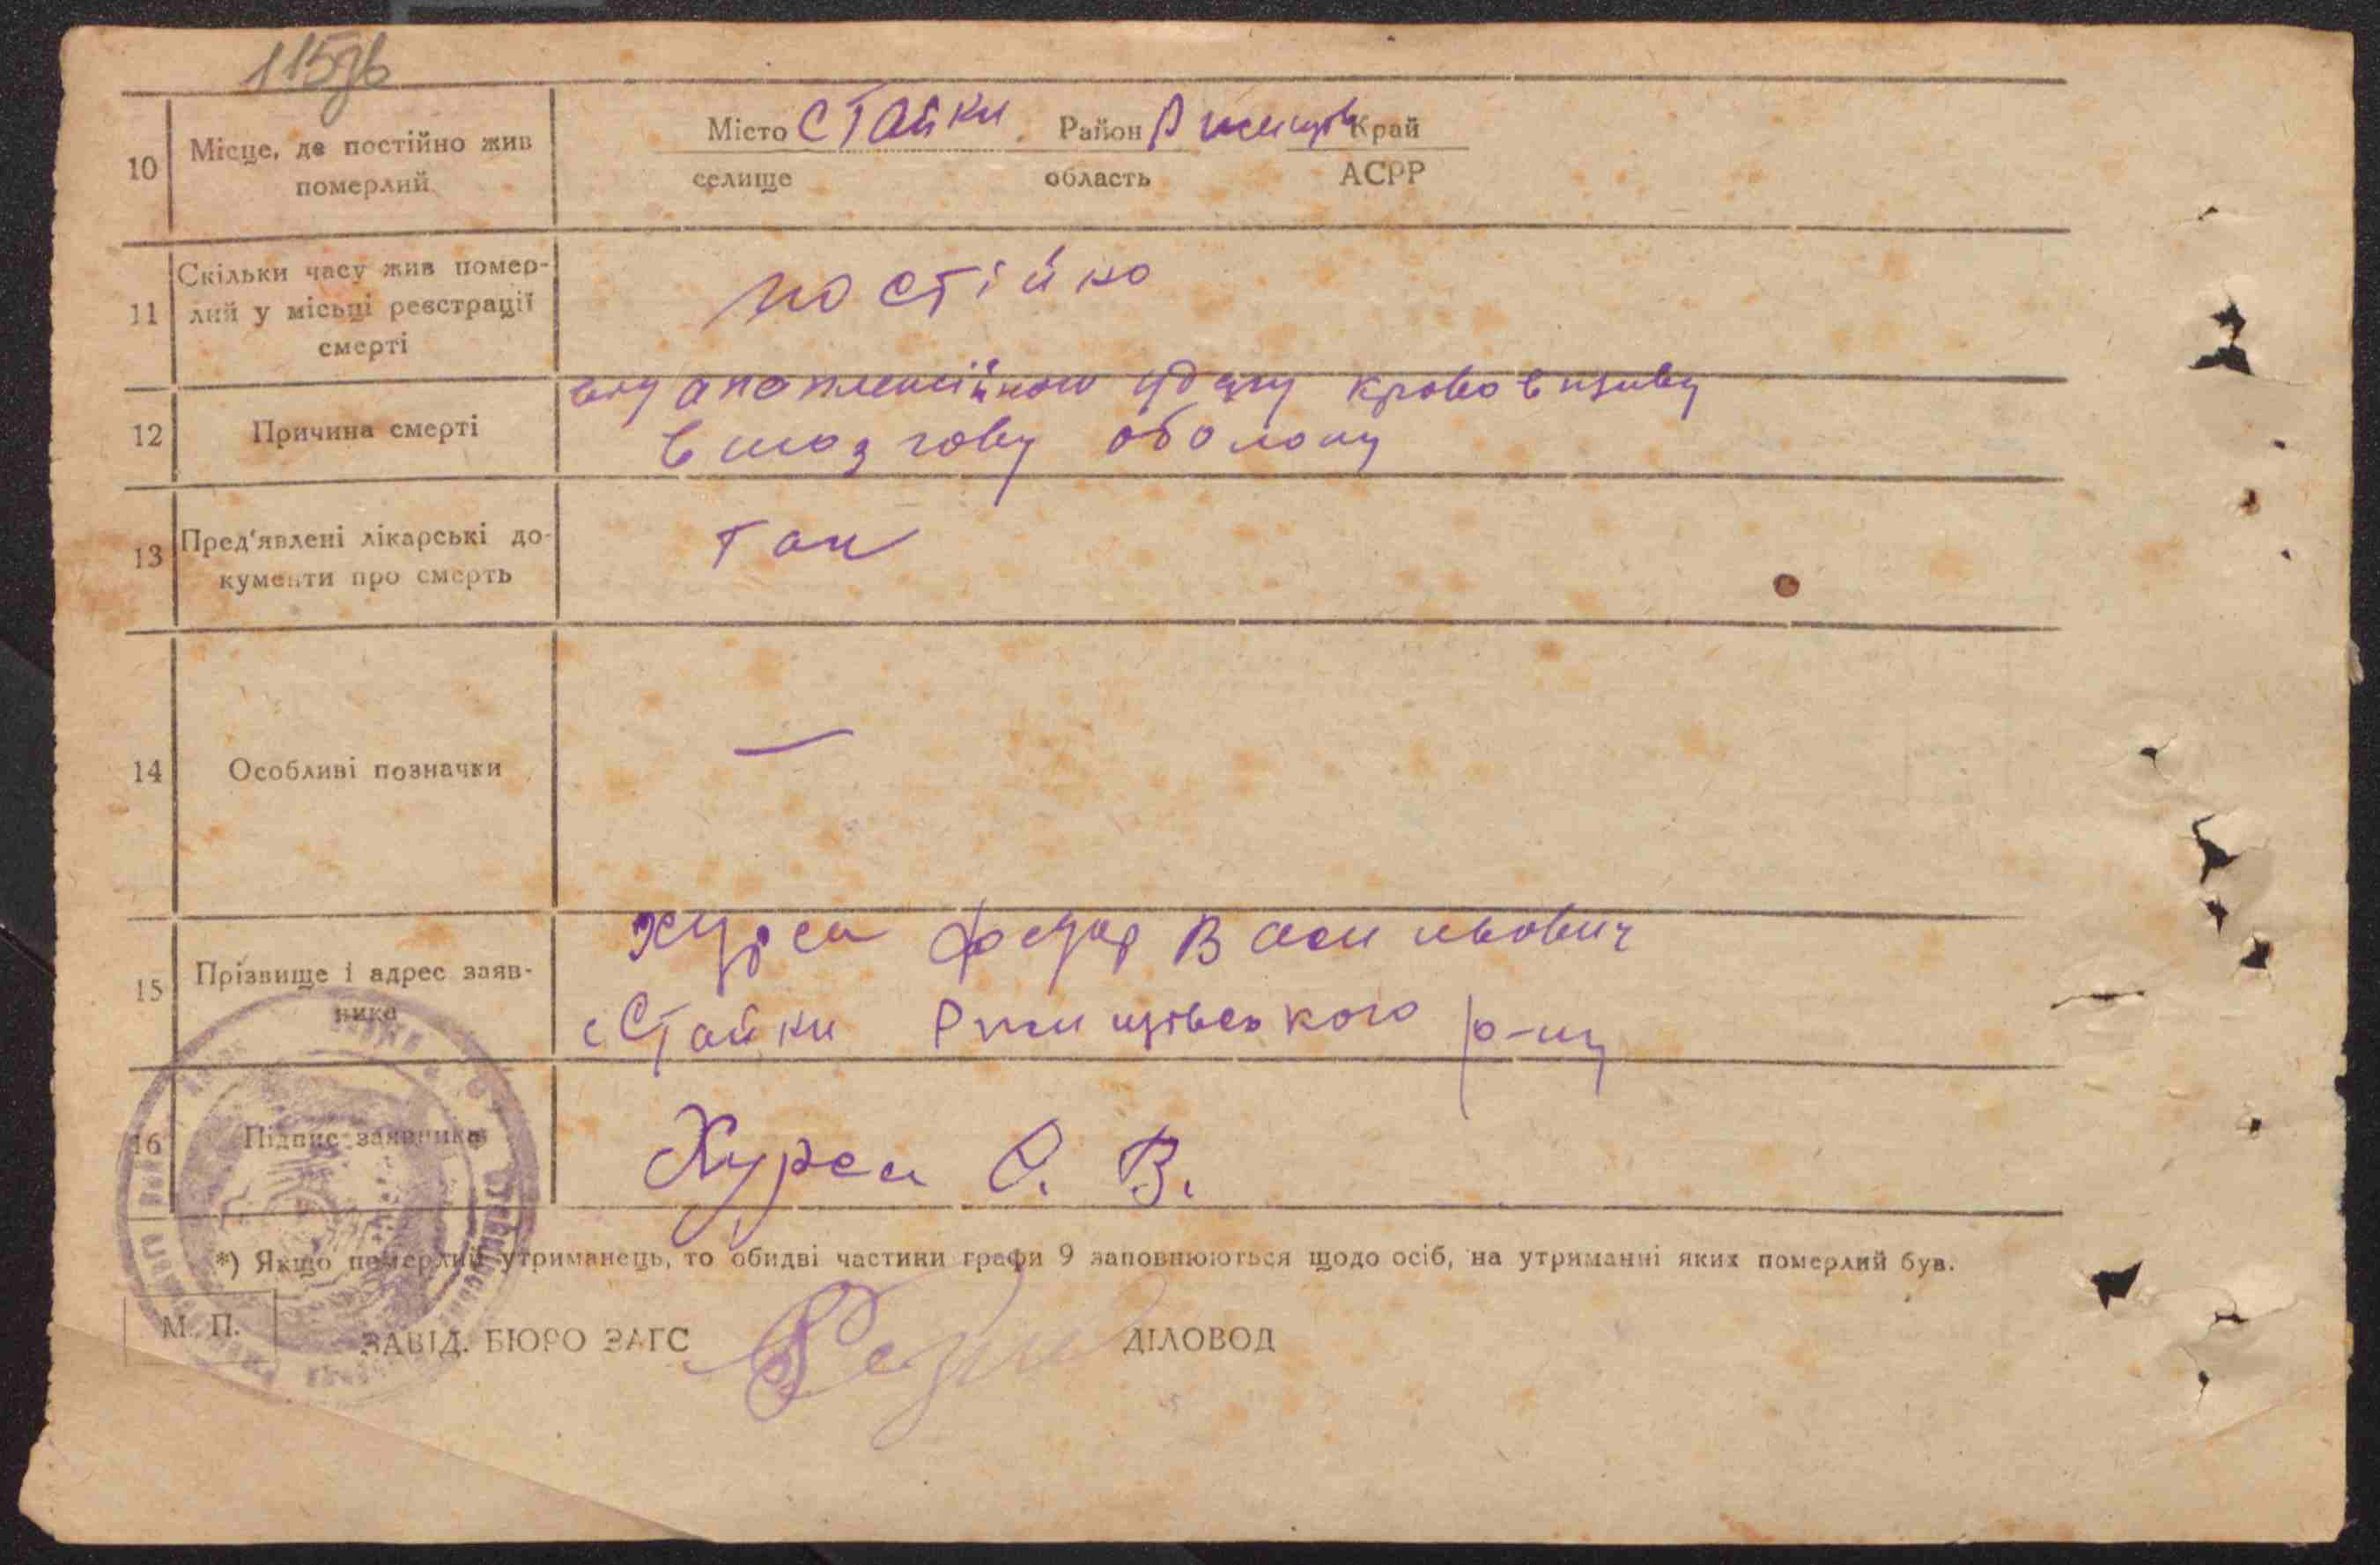 115зв
10 Місце, де постійно жив
померлий
Місто Стайки Район Ржищів Край
селище область АСРР
11 Скільки часу жив помер-
лий у місьці реєстрації
смерті
постійно
12 Причина смерті
від апоплексійного удару крововиливу
в мозгову оболоку
13 Пред'явлені лікарські до-
кументи про смерть
так
14 Особливі позначки
—
15 Прізвище і адрес заяв-
ника
Хурса Федор Васильович
с Стайки Ржищівського р-ну
16 Підпис заявника
Хурса Ф. В.
*) Якщо померлий утриманець, то обидві частини графи 9 заповнюються щодо осіб, на утриманні яких померлий був.
М. П.
ЗАВІД. БЮРО ЗАГС ДІЛОВОД